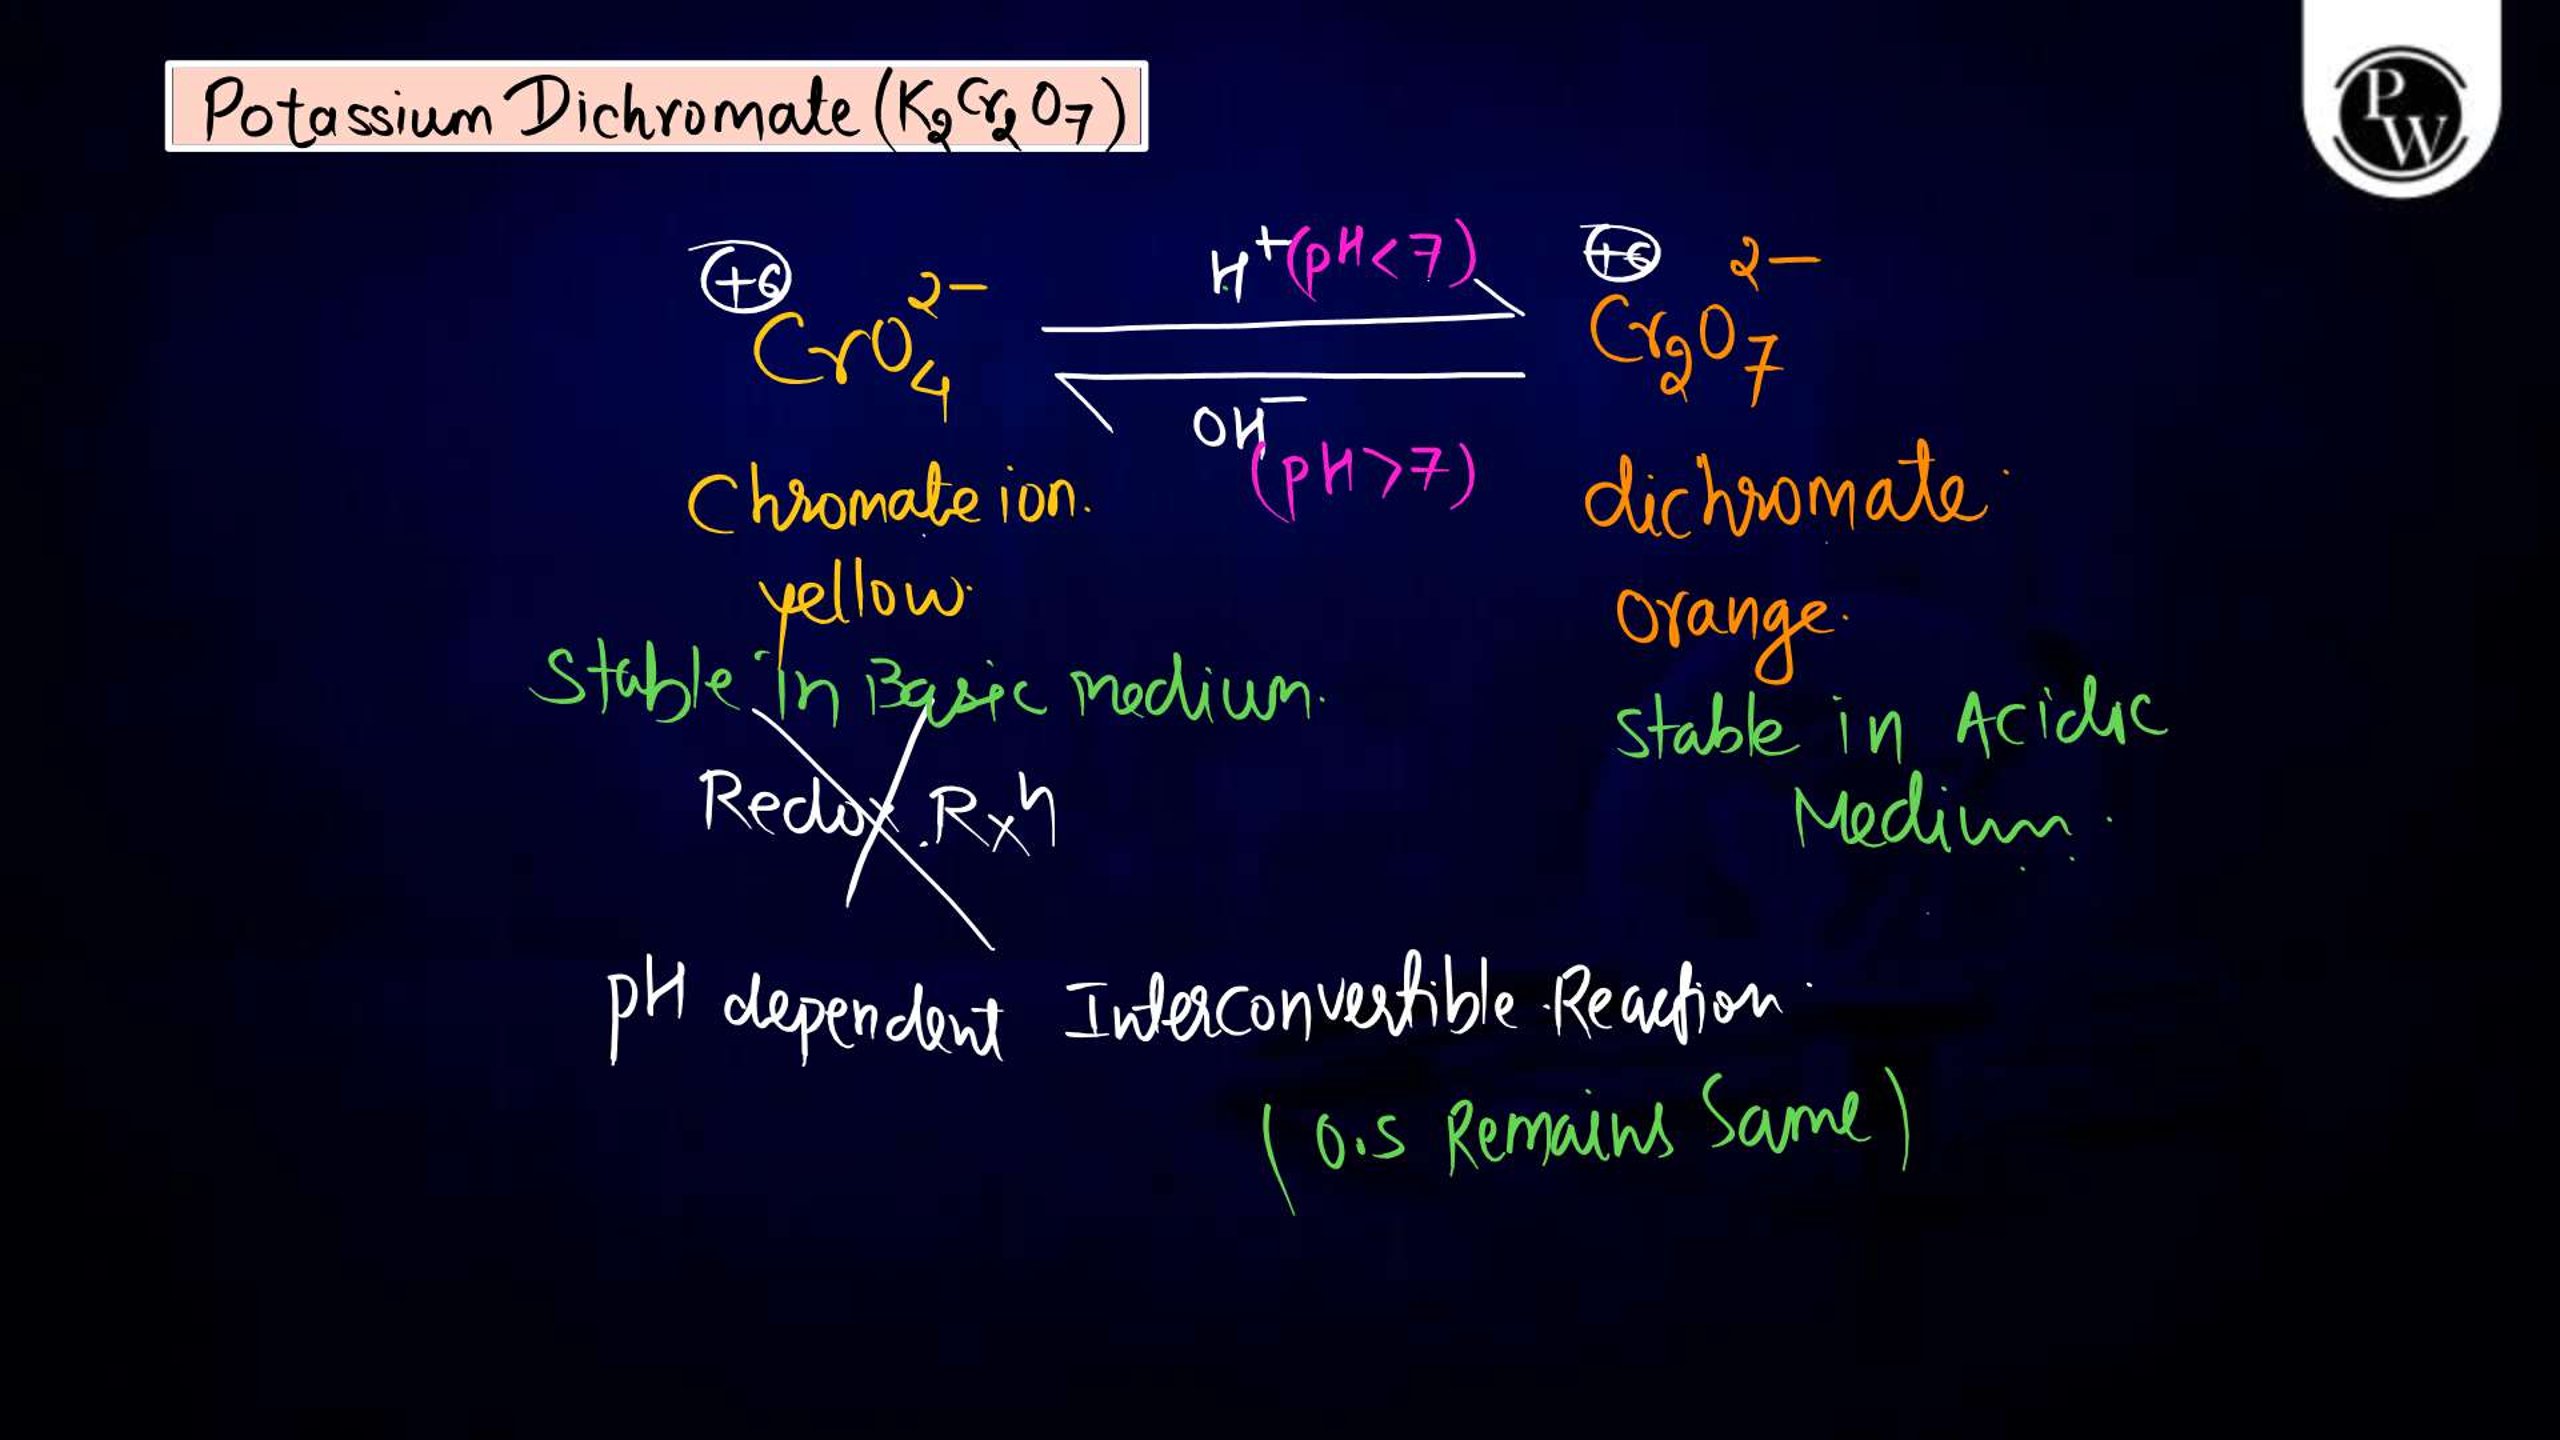 Potassium Dichromate (K₂Cr₂O₇)
PW
+6 CrO₄²⁻ H⁺ (pH<7) OH⁻ (pH>7) +6 Cr₂O₇²⁻
Chromate ion. dichromate.
yellow. orange.
Stable in Basic medium. Stable in Acidic
Medium.
Redox Rxn
pH dependent Interconvertible Reaction.
(O.S Remains Same)